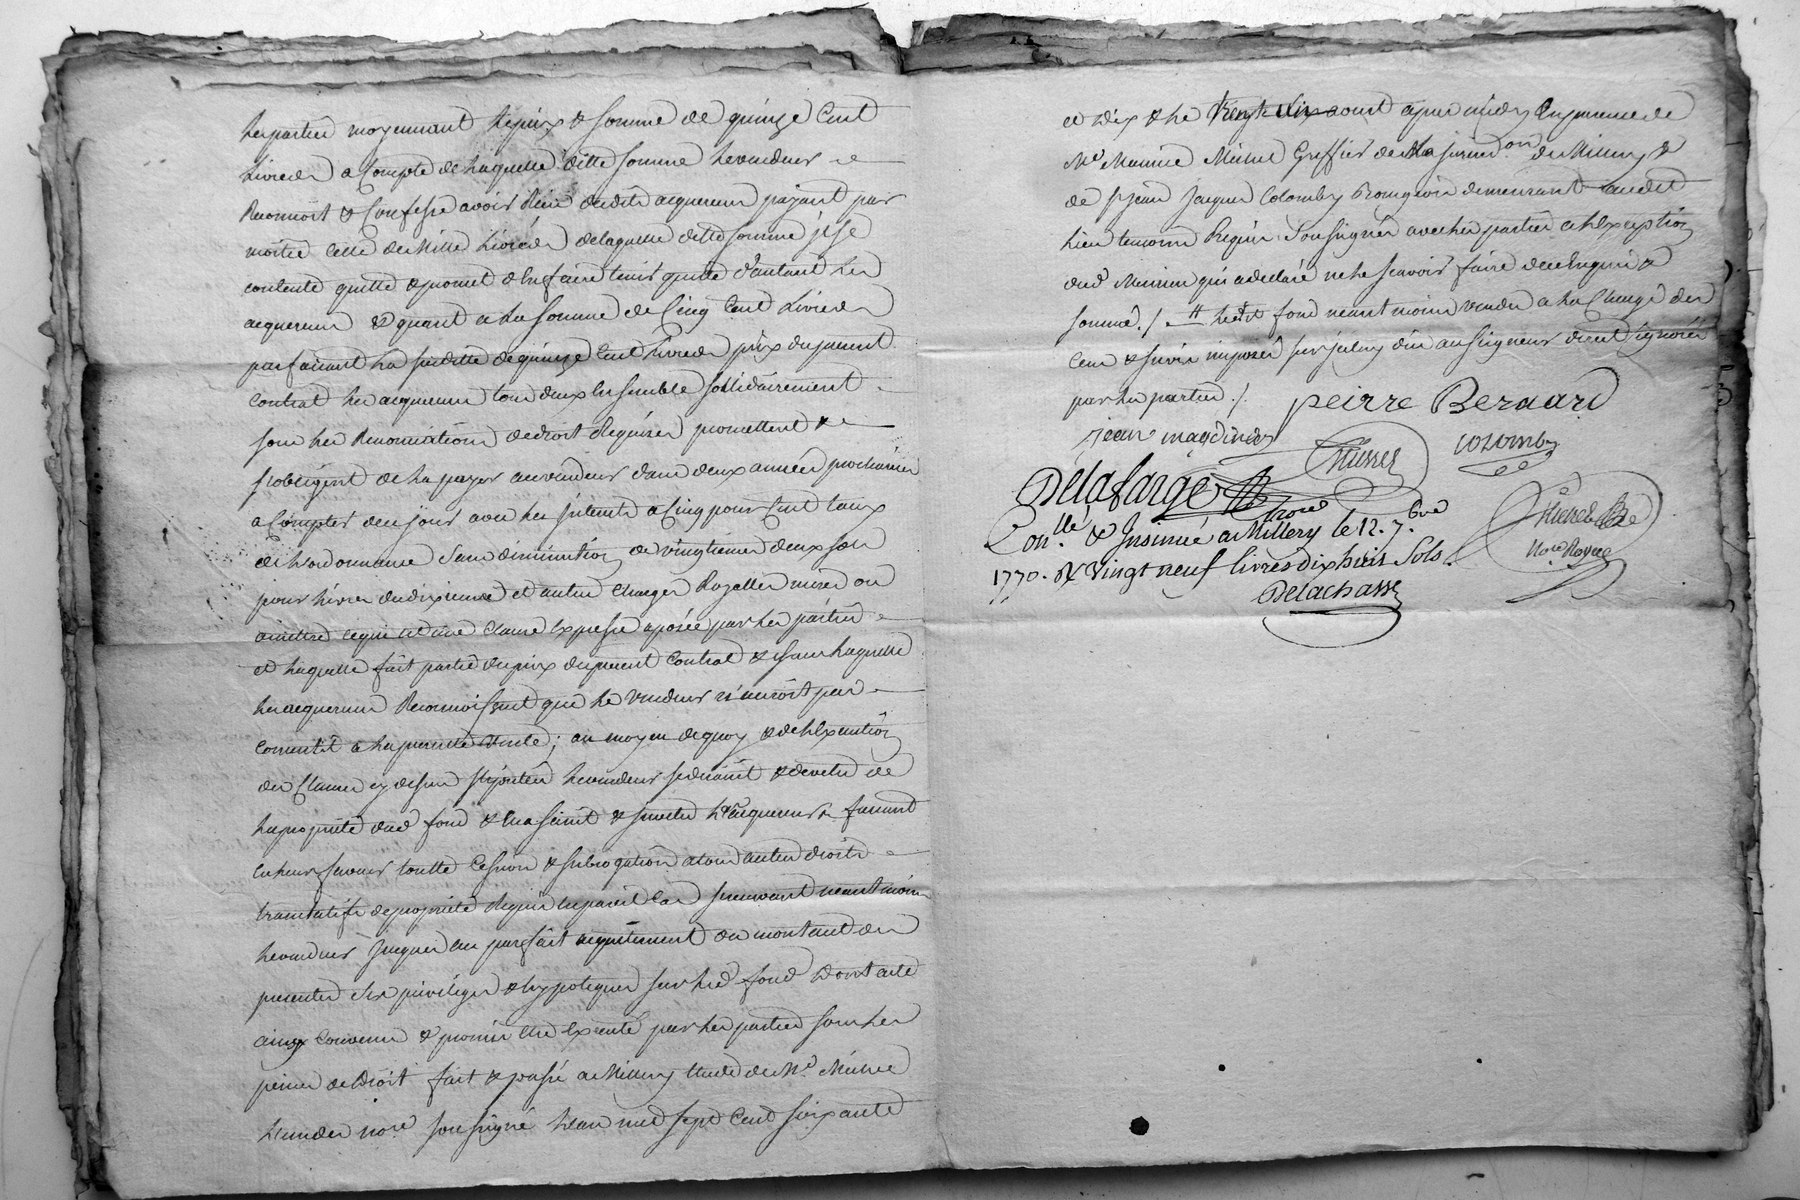 les parties moyennant le prix & somme de quinze Cent
Livres a Compte de laquelle ditte somme le vendeur
Reconnoit & Confesse avoir Reçu desdits acquereurs payant par
moitié celle de Mille Livres de laquelle ditte somme il se
contente quitte & promet de les faire tenir quitte d'autant les
acquereurs & quant a la somme de Cinq Cent Livres
parfaisant la susditte de quinze Cent Livres prix du present
contrat les acquereurs tous deux Ensemble sollidairement
sous les Renonciations de droit Requises promettent &
s'obligent de la payer au vendeur dans deux années prochaines
a Compter de ce jour avec les interets a Cinq pour Cent taux
de l'ordonnance sans diminution de vingtiemes deux sols
pour Livres du dixieme et autres Charges Royalles mises ou
a mettre ce qui est une clause Expresse aposée par les parties
et laquelle fait partie du prix du present Contrat & sans laquelle
les acquereurs Reconnoissent que le vendeur n'auroit pas
consentit a la presente vente ; au moyen de quoy & de l'Exeution
des Clauses cy dessus le vendeur se demet & devetu de
la proprieté dud fond & en a saisit & investu les acquereurs faisant
en leurs faveurs toutte Cession & subrogation a tous autres droits
translatifs de proprieté Requis en pareil Cas se reservant neantmoins
le vendeur jusques au parfait acquittement du montant des
presentes ses privileges & hypoteques sur led fond Dont acte
ainsy Convenu & promis etre Executé par les parties sous les
peines de Droit fait & passé a Millery Etude de Me
l'un des nores soussigné l'an mil sept Cent soixante
et Dix & le vingt six aoust apres midy En presence de
Me Maurice Michel Greffier de la jurisdon de Millery &
de sr jean Jacques Colomby Bourgeois demeurant audit
Lieu temoins Requis soussignés avec les parties a l'Exception
dud qui a declaré ne le scavoir faire de ce Enquis &
sommé ./ ledit fond neantmoins vendu a la Charge des
Cens & servis imposés sur jceluy dus au seigneur direct ignorés
par les parties ./.
peirre Bernard
jean
colomby
Delafarge
Conllé & Insinué a Millery le 12. 7.bre
1770. R vingt neuf livres dix huit sols.
Delachasse
nore Royal